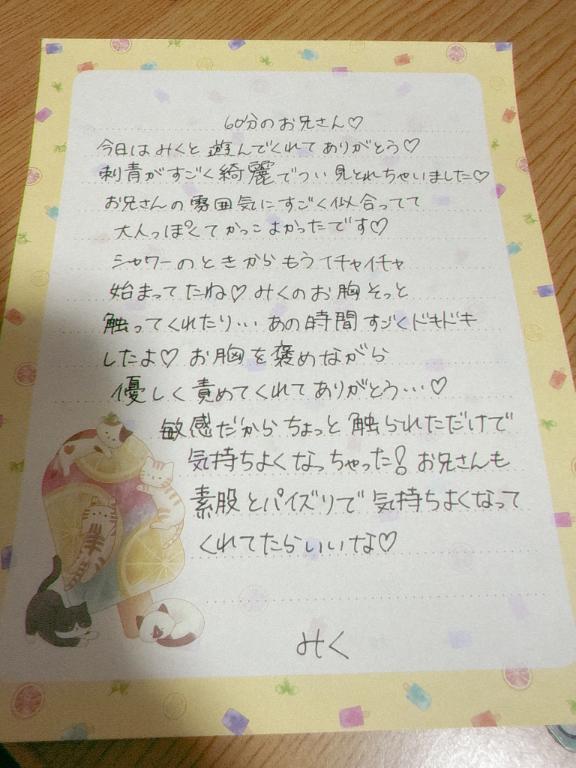 60分のお兄さん♡
今日はみくと遊んでくれてありがとう♡
刺青がすごく綺麗でつい見とれちゃいました♡
お兄さんの雰囲気にすごく似合ってて
大人っぽくてかっこよかったです♡
シャワーのときからもうイチャイチャ
始まってたね♡みくのお胸そっと
触ってくれたり…あの時間すごくドキドキ
したよ♡お胸を褒めながら
優しく責めてくれてありがとう…♡
敏感だからちょっと触られただけで
気持ちよくなっちゃった!お兄さんも
素股とパイズリで気持ちよくなって
くれてたらいいな♡
みく